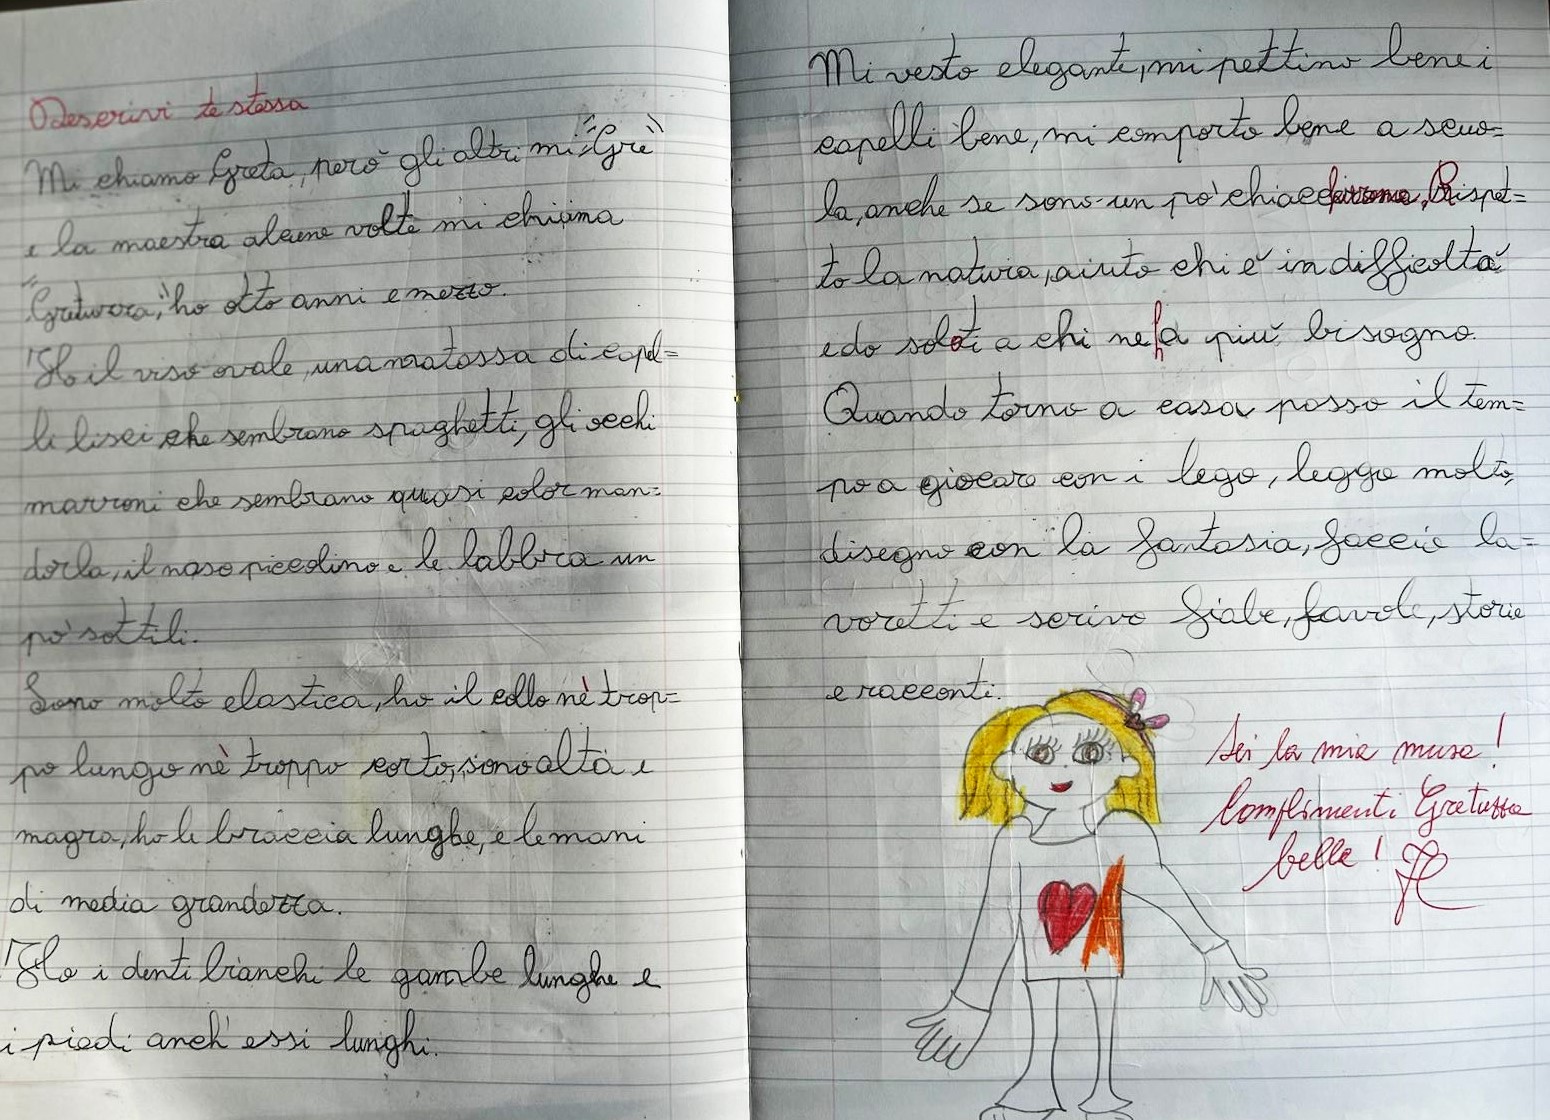 Descrivi te stessa
Mi chiamo Greta, però gli altri mi "Gre"
e la maestra alcune volte mi chiama
"Gretuzza", ho otto anni e mezzo.
Ho il viso ovale, una matassa di capel=
li lisci che sembrano spaghetti, gli occhi
marroni che sembrano quasi color man=
dorla, il naso piccolino e le labbra un
pò sottili.
Sono molto elastica, ho il collo nè trop=
po lungo nè troppo corto, sono alta e
magra, ho le braccia lunghe, e le mani
di media grandezza.
Ho i denti bianchi le gambe lunghe e
i piedi anch'essi lunghi.
Mi vesto elegante, mi pettino bene i
capelli bene, mi comporto bene a scuo=
la, anche se sono un pò chiacchierona, Rispet=
to la natura, aiuto chi è in difficoltà
e do soldi a chi ne ha più bisogno.
Quando torno a casa passo il tem=
po a giocare con i lego, leggo molto,
disegno con la fantasia, faccio la=
voretti e scrivo fiabe, favole, storie
e racconti.
Sei la mia musa!
Complimenti Gretuzza
bella!